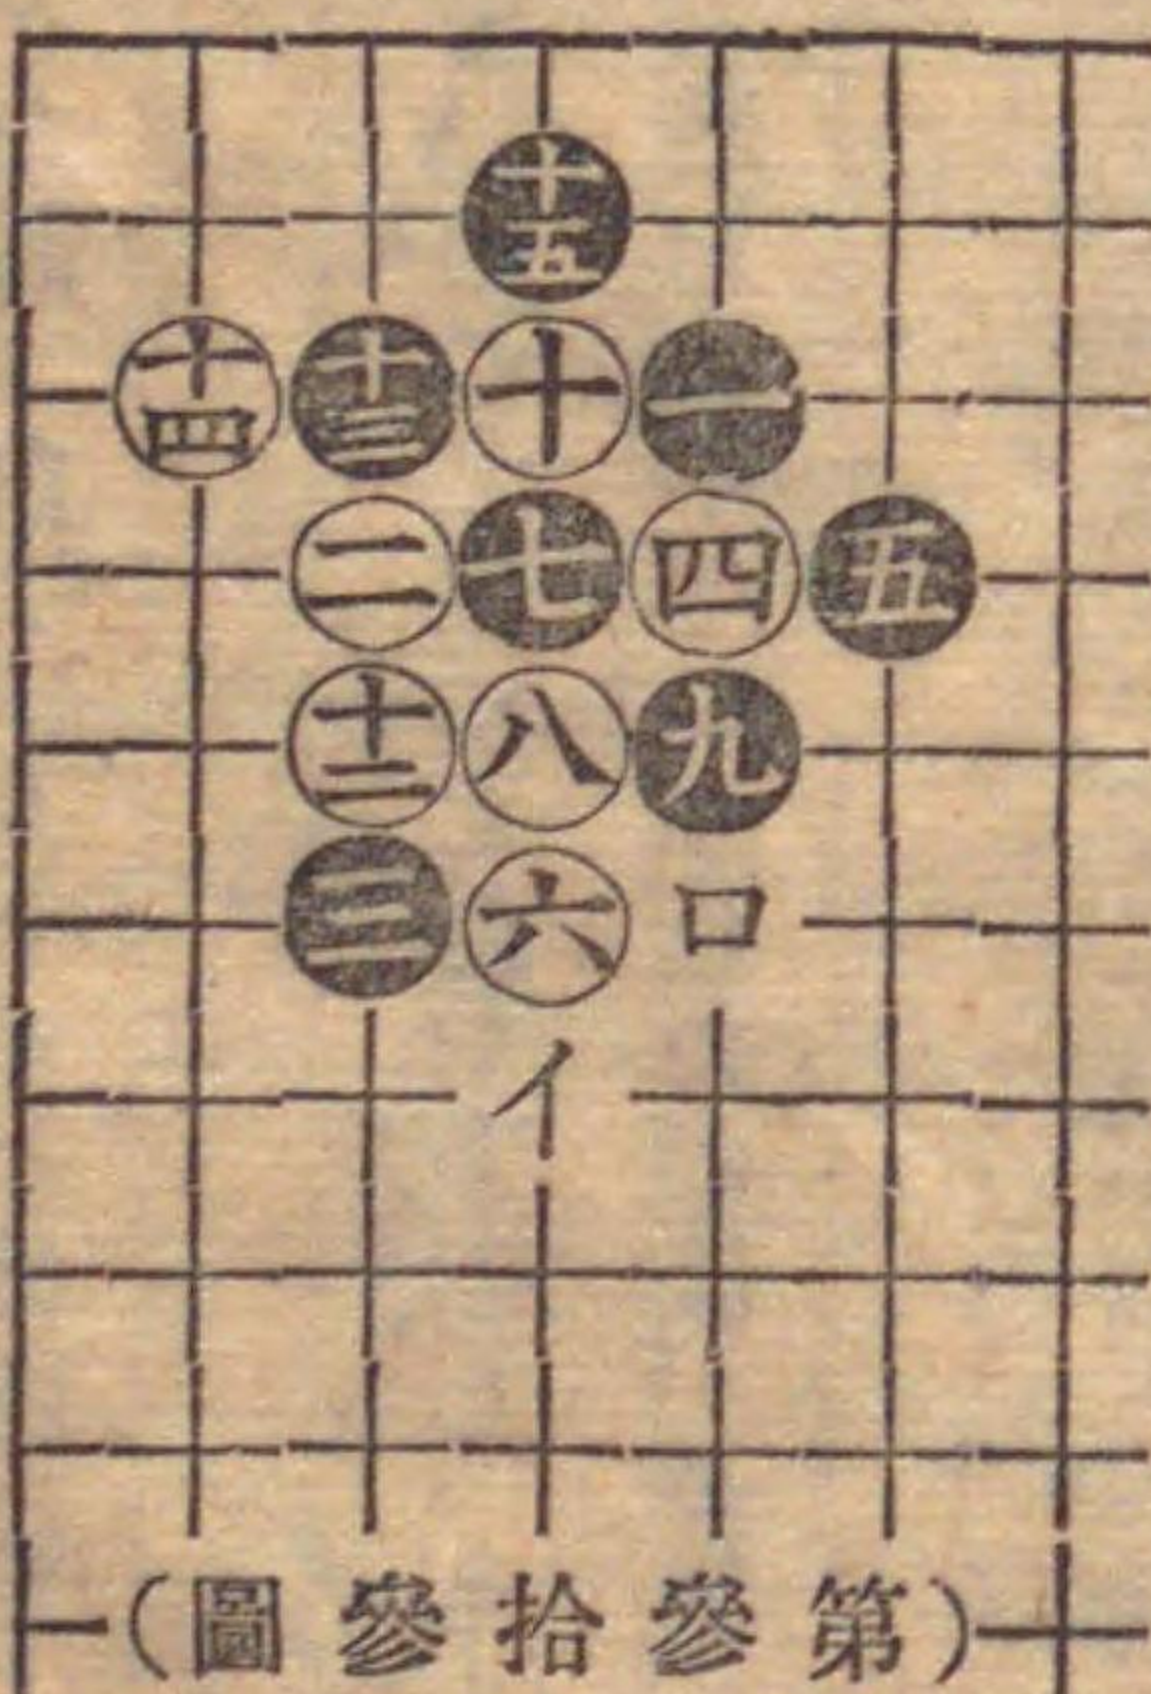 十五
十四 十三 十 一
二 七 四 五
十二 八 九
三 六 ロ
イ
(第參拾參圖)